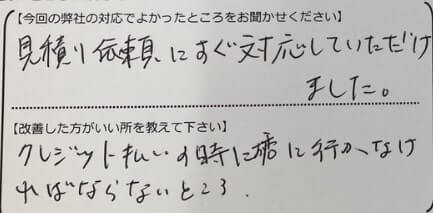 【今回の弊社の対応でよかったところをお聞かせください】
見積り依頼にすぐ対応していただけ
ました。
【改善した方がいい所を教えて下さい】
クレジット払いの時に店に行かなけ
ればならないところ.